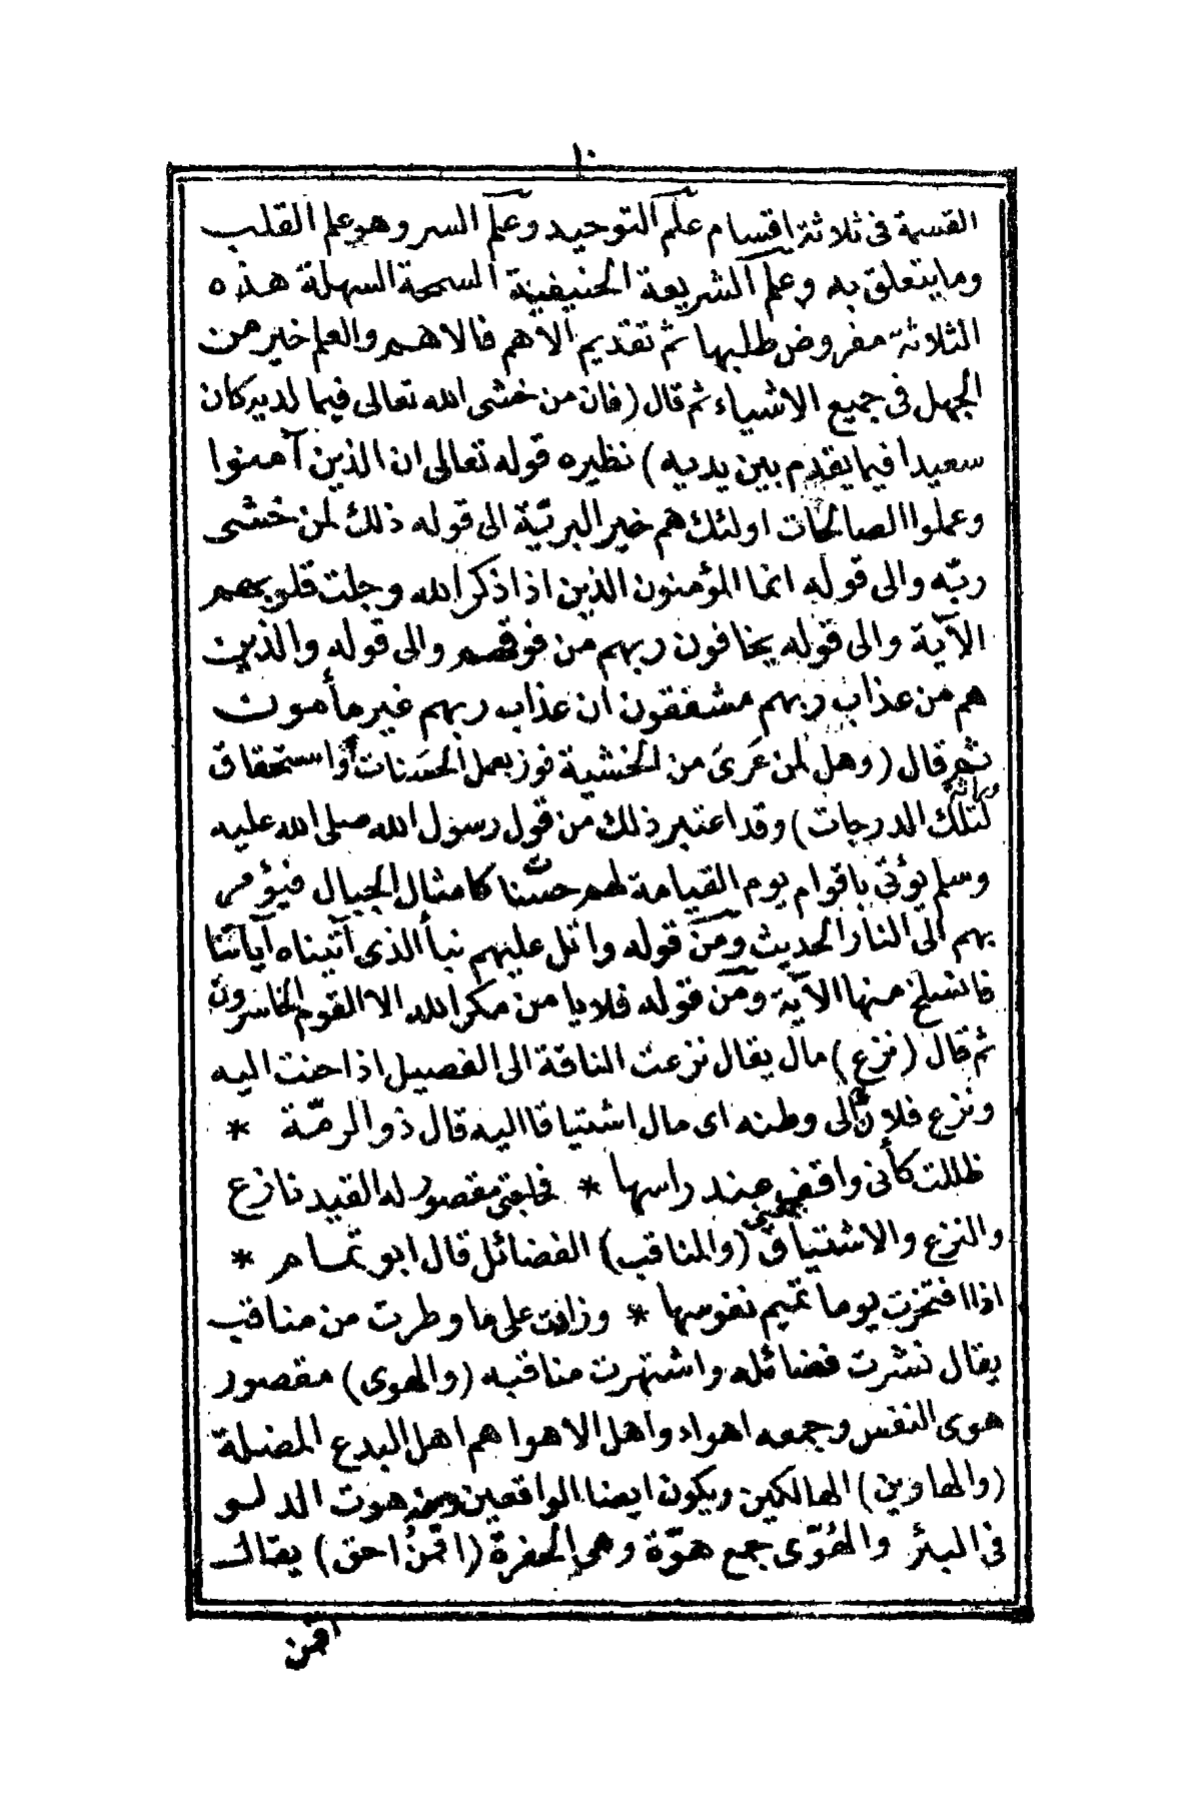 ١٠
القسمة فى ثلاثة اقسام علم التوحيد وعلم السر وهو علم القلب
وما يتعلق به وعلم الشريعة الحنيفية السمحة السهلة هذه
الثلاثة مفروض طلبها ثم تقديم الاهم فالاهم والعلم خير من
الجهل فى جميع الاشياء ثم قال (فان من خشى الله تعالى فيما لديه كان
سعيدا فيما يقدم بين يديه) نظيره قوله تعالى ان الذين آمنوا
وعملوا الصالحات اولئك هم خير البريّة الى قوله ذلك لمن خشى
ربّه والى قوله انما المؤمنون الذين اذا ذكر الله وجلت قلوبهم
الآية والى قوله يخافون ربهم من فوقهم والى قوله والذين
هم من عذاب ربهم مشفقون ان عذاب ربهم غير مأمون
ثم قال (وهل لمن عَرىَ من الخشية فوز بعمل الحسَنات أو استحقاق
وراثة
لتلك الدرجات) وقد اعتبر ذلك من قول رسول الله صلى الله عليه
وسلم يؤتى باقوام يوم القيامة لهم حسنات كامثال الجبال فيؤمر
بهم الى النار الحديث ومن قوله واتل عليهم نبأ الذى آتيناه آياتنا
فانسلخ منها الآية ومن قوله فلا يا من مكر الله الا القوم الخاسرون
ثم قال (نزع) مال يقال نزعت الناقة الى الفصيل اذا حنت اليه
ونزع فلان الى وطنه اى مال اشتياقا اليه قال ذو الرمّة *
ظللت كأنى واقف عند راسها * مقصور له القيد نازع
والنزع والاشتياق بمعنى (والمناقب) الفضائل قال ابو تمام *
اذا افتخرت يوما تميم نفوسها * وزادت على ما وطرت من مناقب
يقال نشرت فضائله واشتهرت مناقبه (والهوى) مقصور
هوى النفس وجمعه اهواء واهل الاهوا هم اهل البدع المضلة
(والهاوين) الهالكين ويكون ايضا الواقعين ومنه هوت الدلو
فى البئر والهُوّى جمع هوّة وهى الحفرة (اقمنُ احق) يقال
اقمن